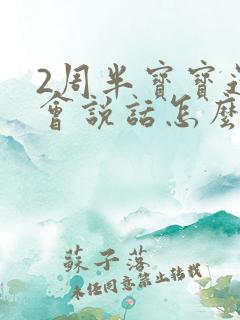 2周半寶寶
會說話怎麼
蘇子落
未经同意禁止转载